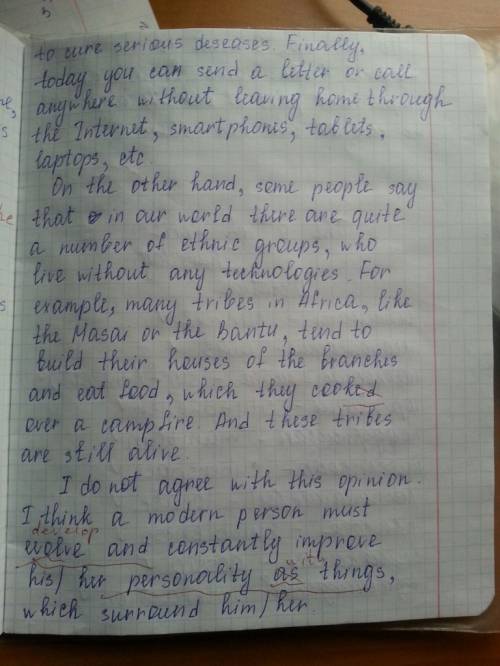 to cure serious deseases. Finally,
today you can send a letter or call
anywhere without leaving home through
the Internet, smartphones, tablets,
laptops, etc.
On the other hand, some people say
that in our world there are quite
a number of ethnic groups, who
live without any technologies. For
example, many tribes in Africa, like
the Masai or the Bantu, tend to
build their houses of the branches
and eat food, which they cooked
over a campfire. And these tribes
are still alive.
I do not agree with this opinion.
I think a modern person must
develop
evolve and constantly improve
with
his/her personality as things,
which surround him/her.